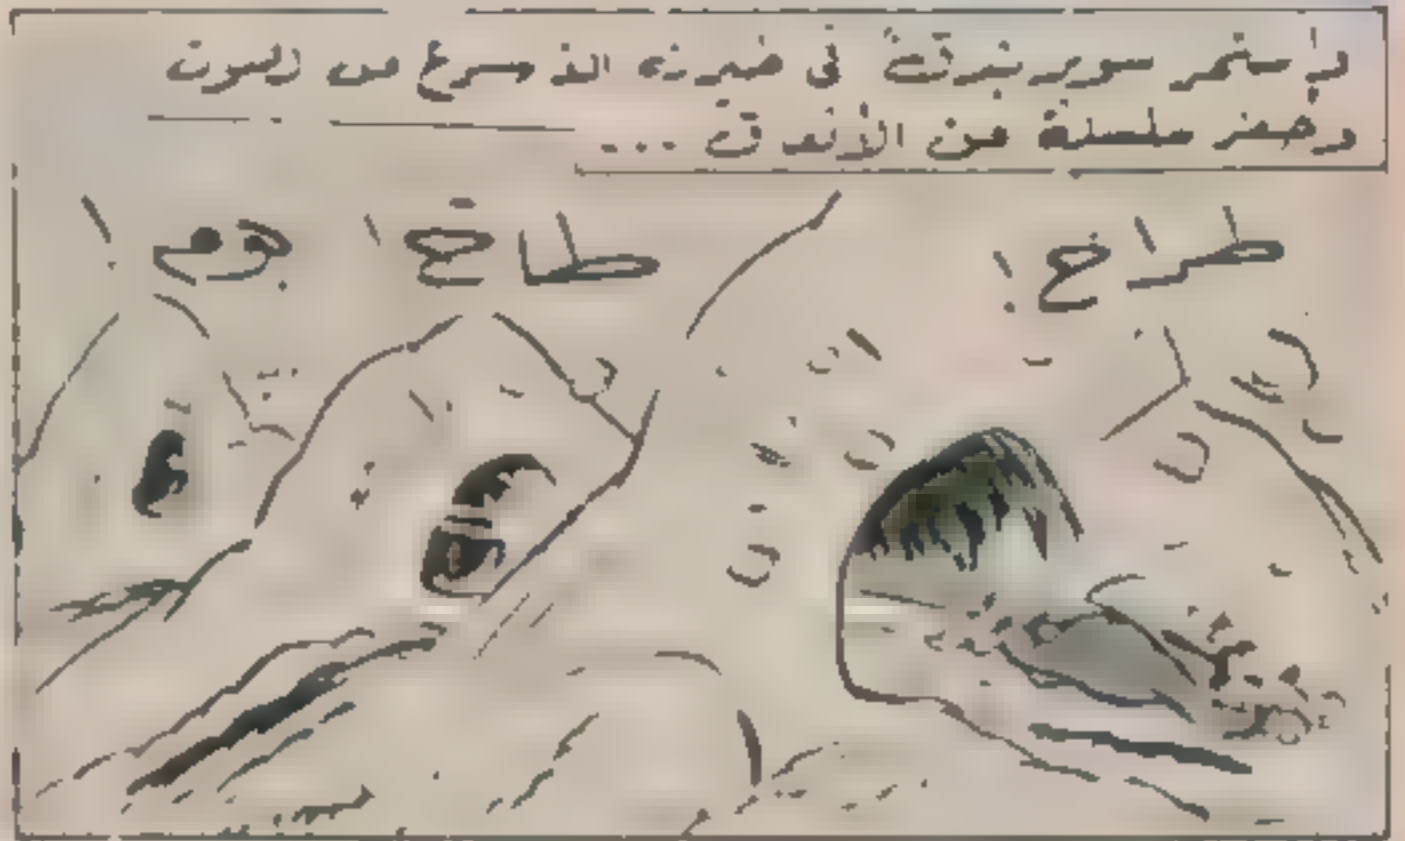 واستمر سوبر بندق في ضربه الأسرع من الصوت
وحفر سلسلة من الأنفاق ...
طراخ !
طاخ !